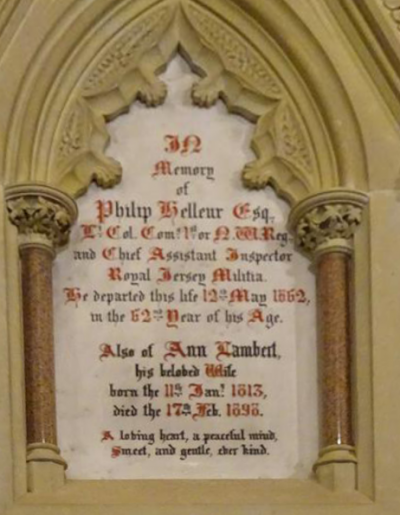 IN
Memory
of
Philip Helleur Esq.
Lt. Col. Comt. 1st or N.W. Reg.
and Chief Assistant Inspector
Royal Jersey Militia.
He departed this life 12th May 1862,
in the 62nd Year of his Age.
Also of Ann Lambert,
his beloved Wife
born the 11th Jany. 1813,
died the 17th Feb. 1898.
A loving heart, a peaceful mind,
Sweet, and gentle, ever kind.